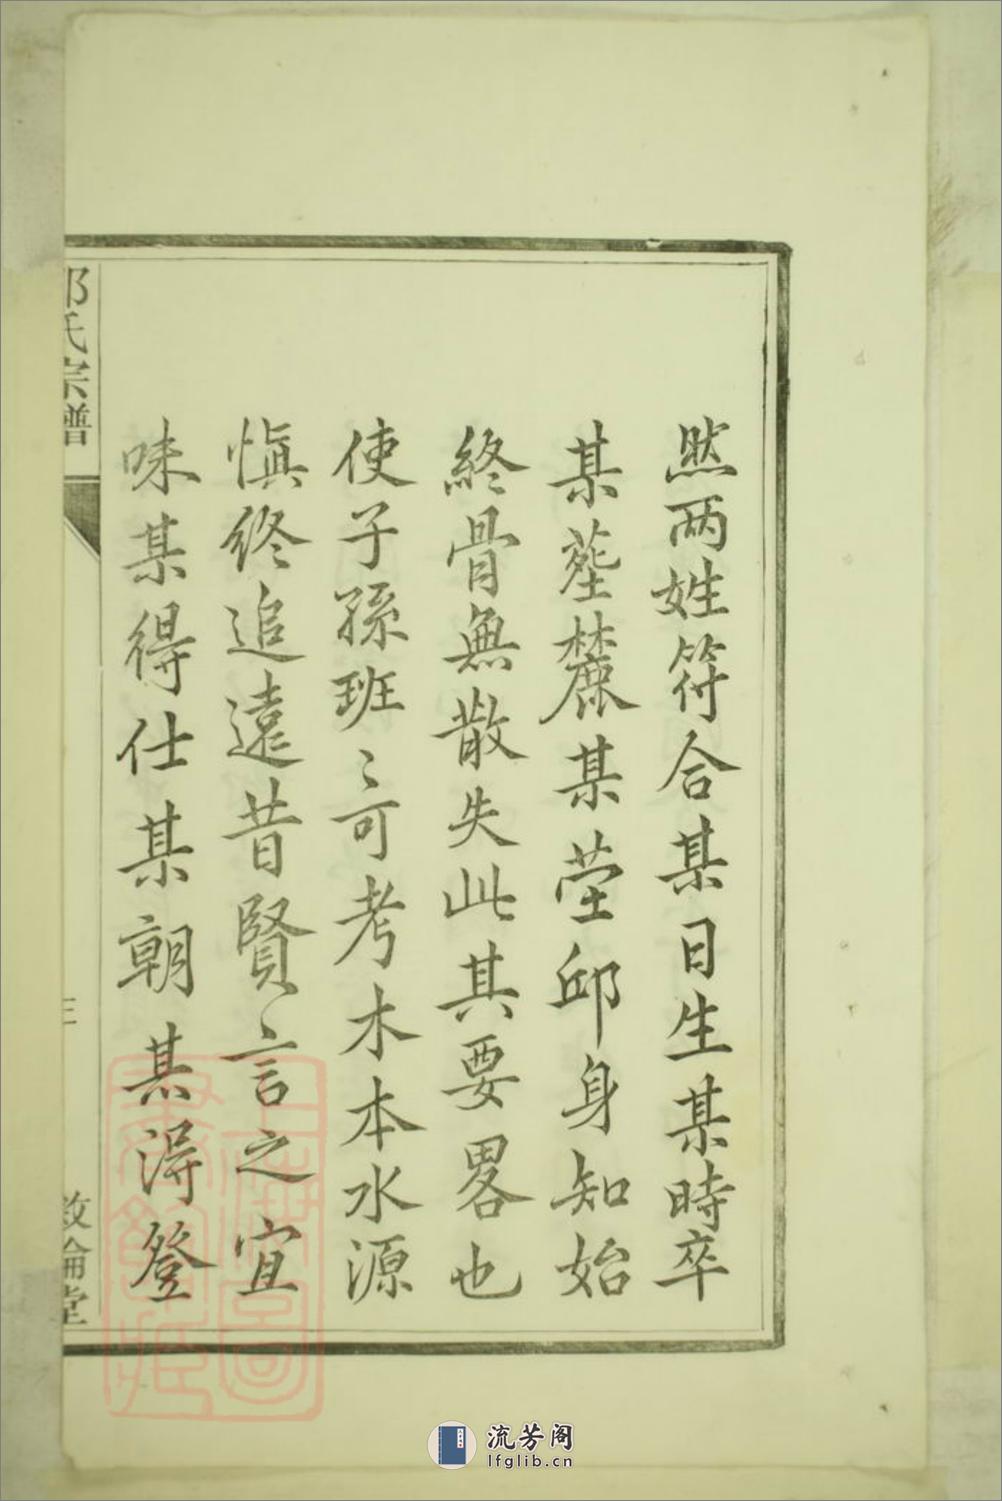 然两姓符合某日生某時卒
某塟麓某茔邱身知始
終骨無散失此其要畧也
使子孫班〻可考木本水源
慎终追遠昔賢言之宜
味某得仕某朝某得登
氏宗譜
三
敦倫堂
上海圖書館藏
流芳阁
lfglib.cn